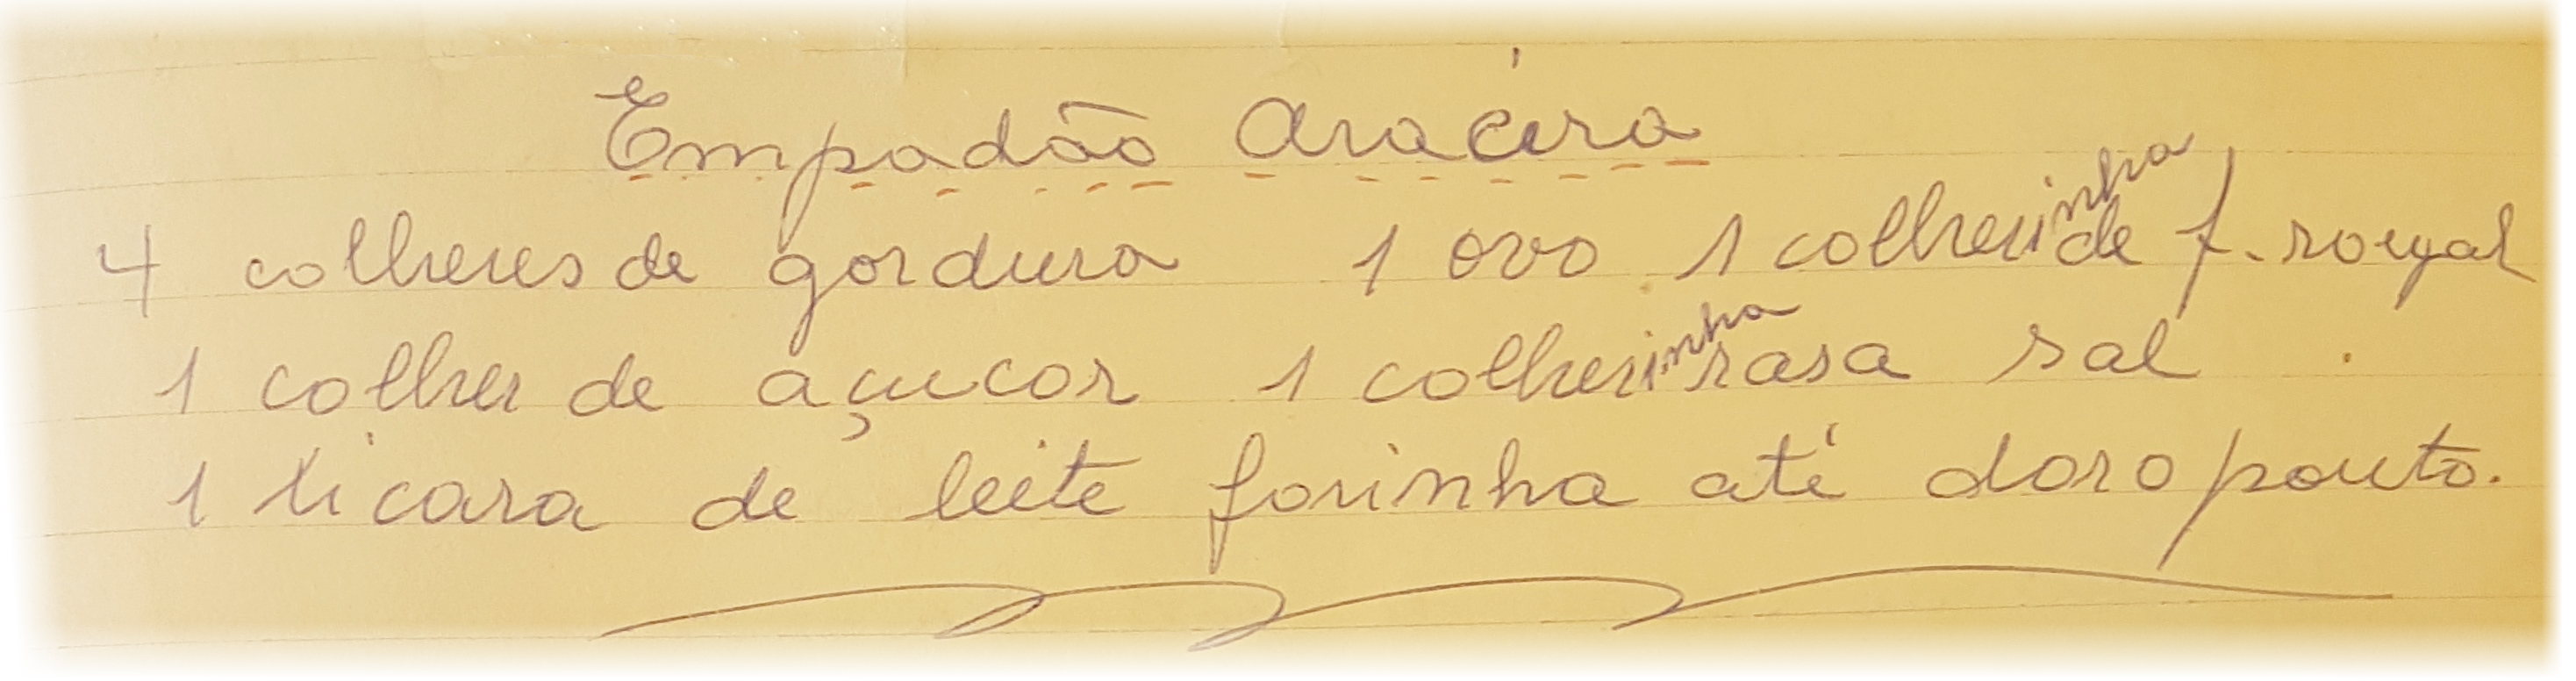 Empadão Aracira
4 colheres de gordura 1 ovo 1 colherinha de f. royal
1 colher de açucar 1 colherinha rasa sal.
1 ticara de leite farinha até dar o ponto.